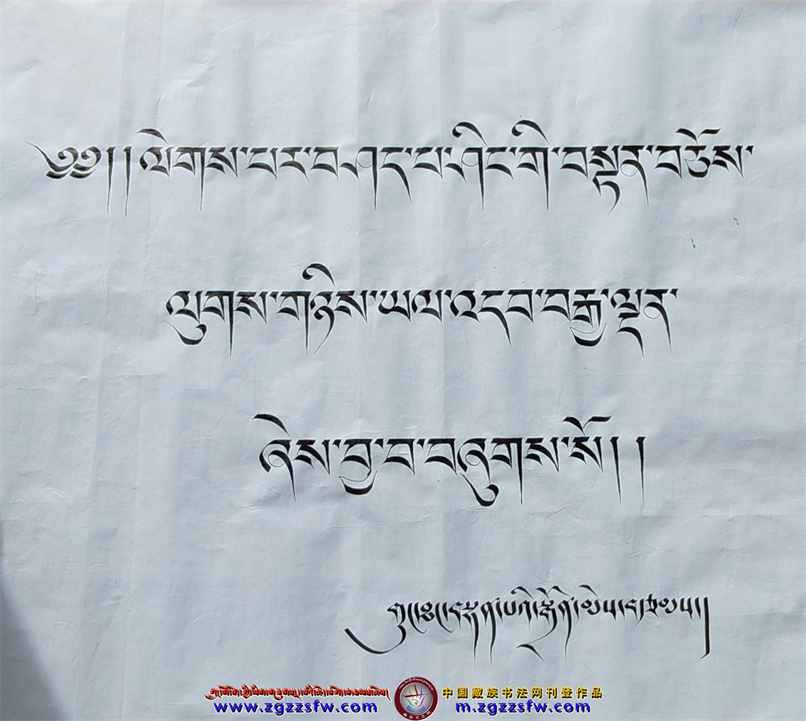 ༄༅། །ལེགས་པར་བཤད་པ་ཤིང་གི་བསྟན་བཅོས་
ལུགས་གཉིས་ཡལ་འདབ་བརྒྱ་ལྡན་
ཞེས་བྱ་བ་བཞུགས་སོ། །
中国藏族书法网刊登作品
www.zgzzsfw.com
m.zgzzsfw.com